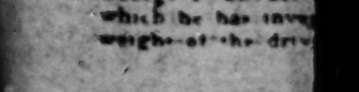 which he has inve
weight of the driv